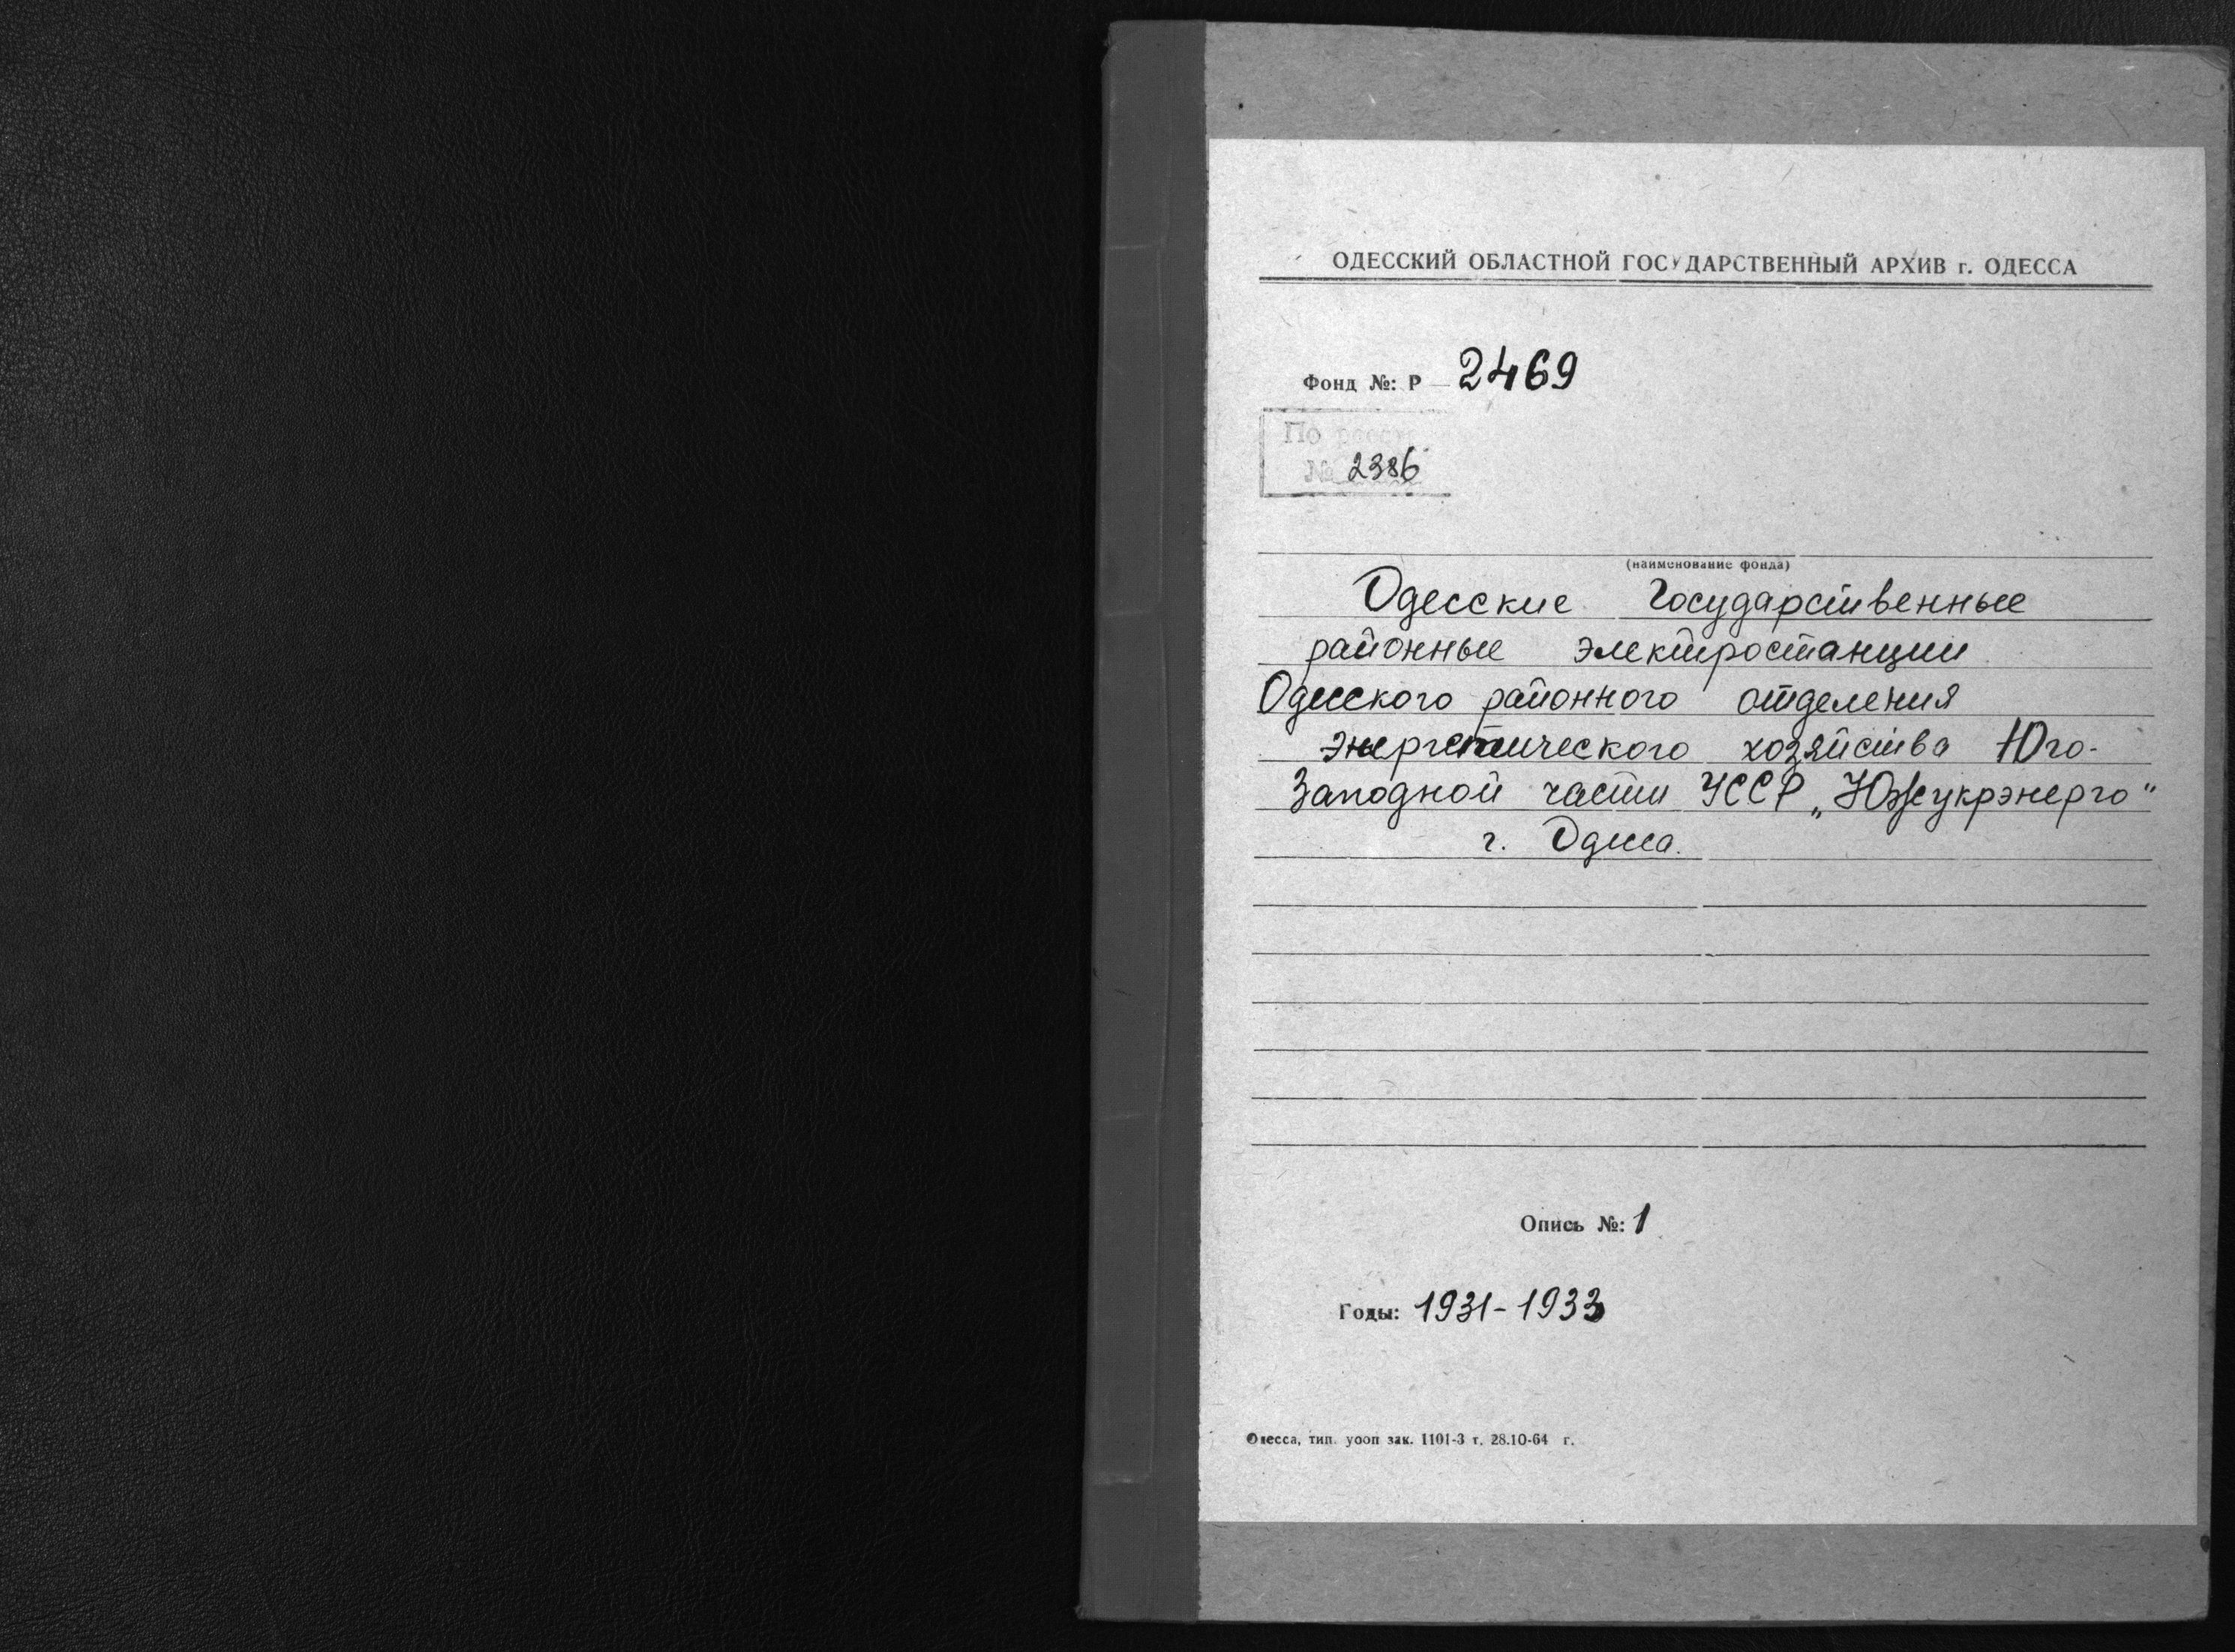 ОДЕССКИЙ ОБЛАСТНОЙ ГОСУДАРСТВЕННЫЙ АРХИВ г. ОДЕССА
Фонд №: Р — 2469
По
№ 2386
(наименование фонда)
Одесские Государственные
районные электростанции
Одесского районного отделения
энергетического хозяйства Юго-
Западной части УССР „Южукрэнерго"
г. Одесса.
Опись №: 1
Годы: 1931-1933
Одесса, тип. уооп зак. 1101-3 т. 28.10-64 г.